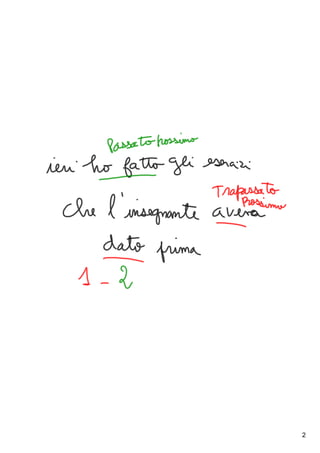 Passato prossimo
ieri ho fatto gli esercizi
Trapassato
Prossimo
che l'insegnante aveva
dato prima
1 - 2
2